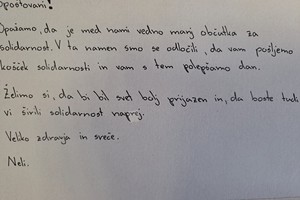 Spoštovani!
Opažamo, da je med nami vedno manj občutka za
solidarnost. V ta namen smo se odločili, da vam pošljemo
košček solidarnosti in vam s tem polepšamo dan.
Želimo si, da bi bil svet bolj prijazen in, da boste tudi
vi širili solidarnost naprej.
Veliko zdravja in sreče.
Neli.